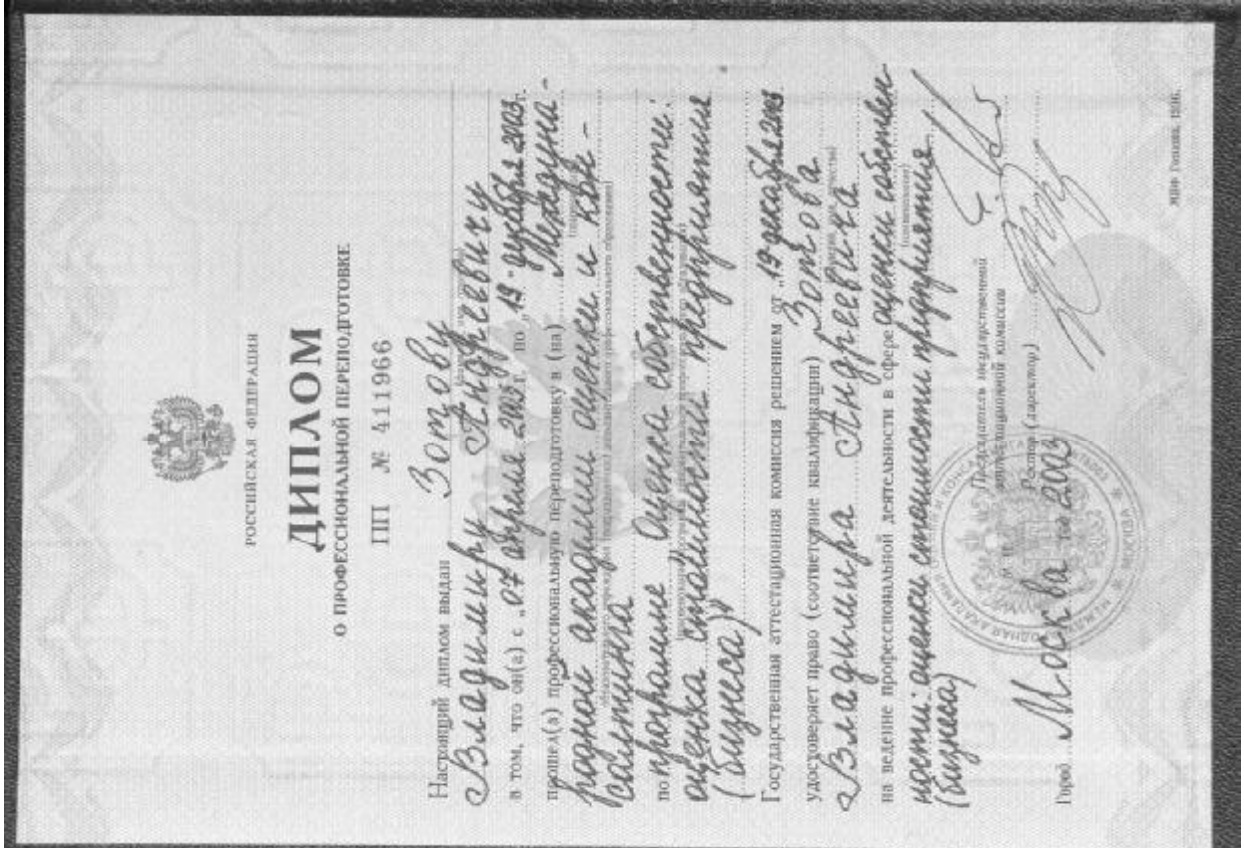 РОССИЙСКАЯ ФЕДЕРАЦИЯ
ДИПЛОМ
О ПРОФЕССИОНАЛЬНОЙ ПЕРЕПОДГОТОВКЕ
ПП № 411966
Настоящий диплом выдан Зотову
Владимиру Андреевичу
в том, что он(а) с „07 апреля 2003г. по „19" декабря 2003г.
прошел(а) профессиональную переподготовку в (на) Междуна-
родной академии оценки и кон-
салтинга
по программе Оценка собственности:
оценка стоимости предприятия
(бизнеса)
Государственная аттестационная комиссия решением от „19 декабря 2003
удостоверяет право (соответствие квалификации) Зотова
Владимира Андреевича
на ведение профессиональной деятельности в сфере оценки собствен-
ности: оценки стоимости предприятия
(бизнеса)
Председатель государственной
аттестационной комиссии
Ректор (директор)
Город Москва год 2003
МОСКВА